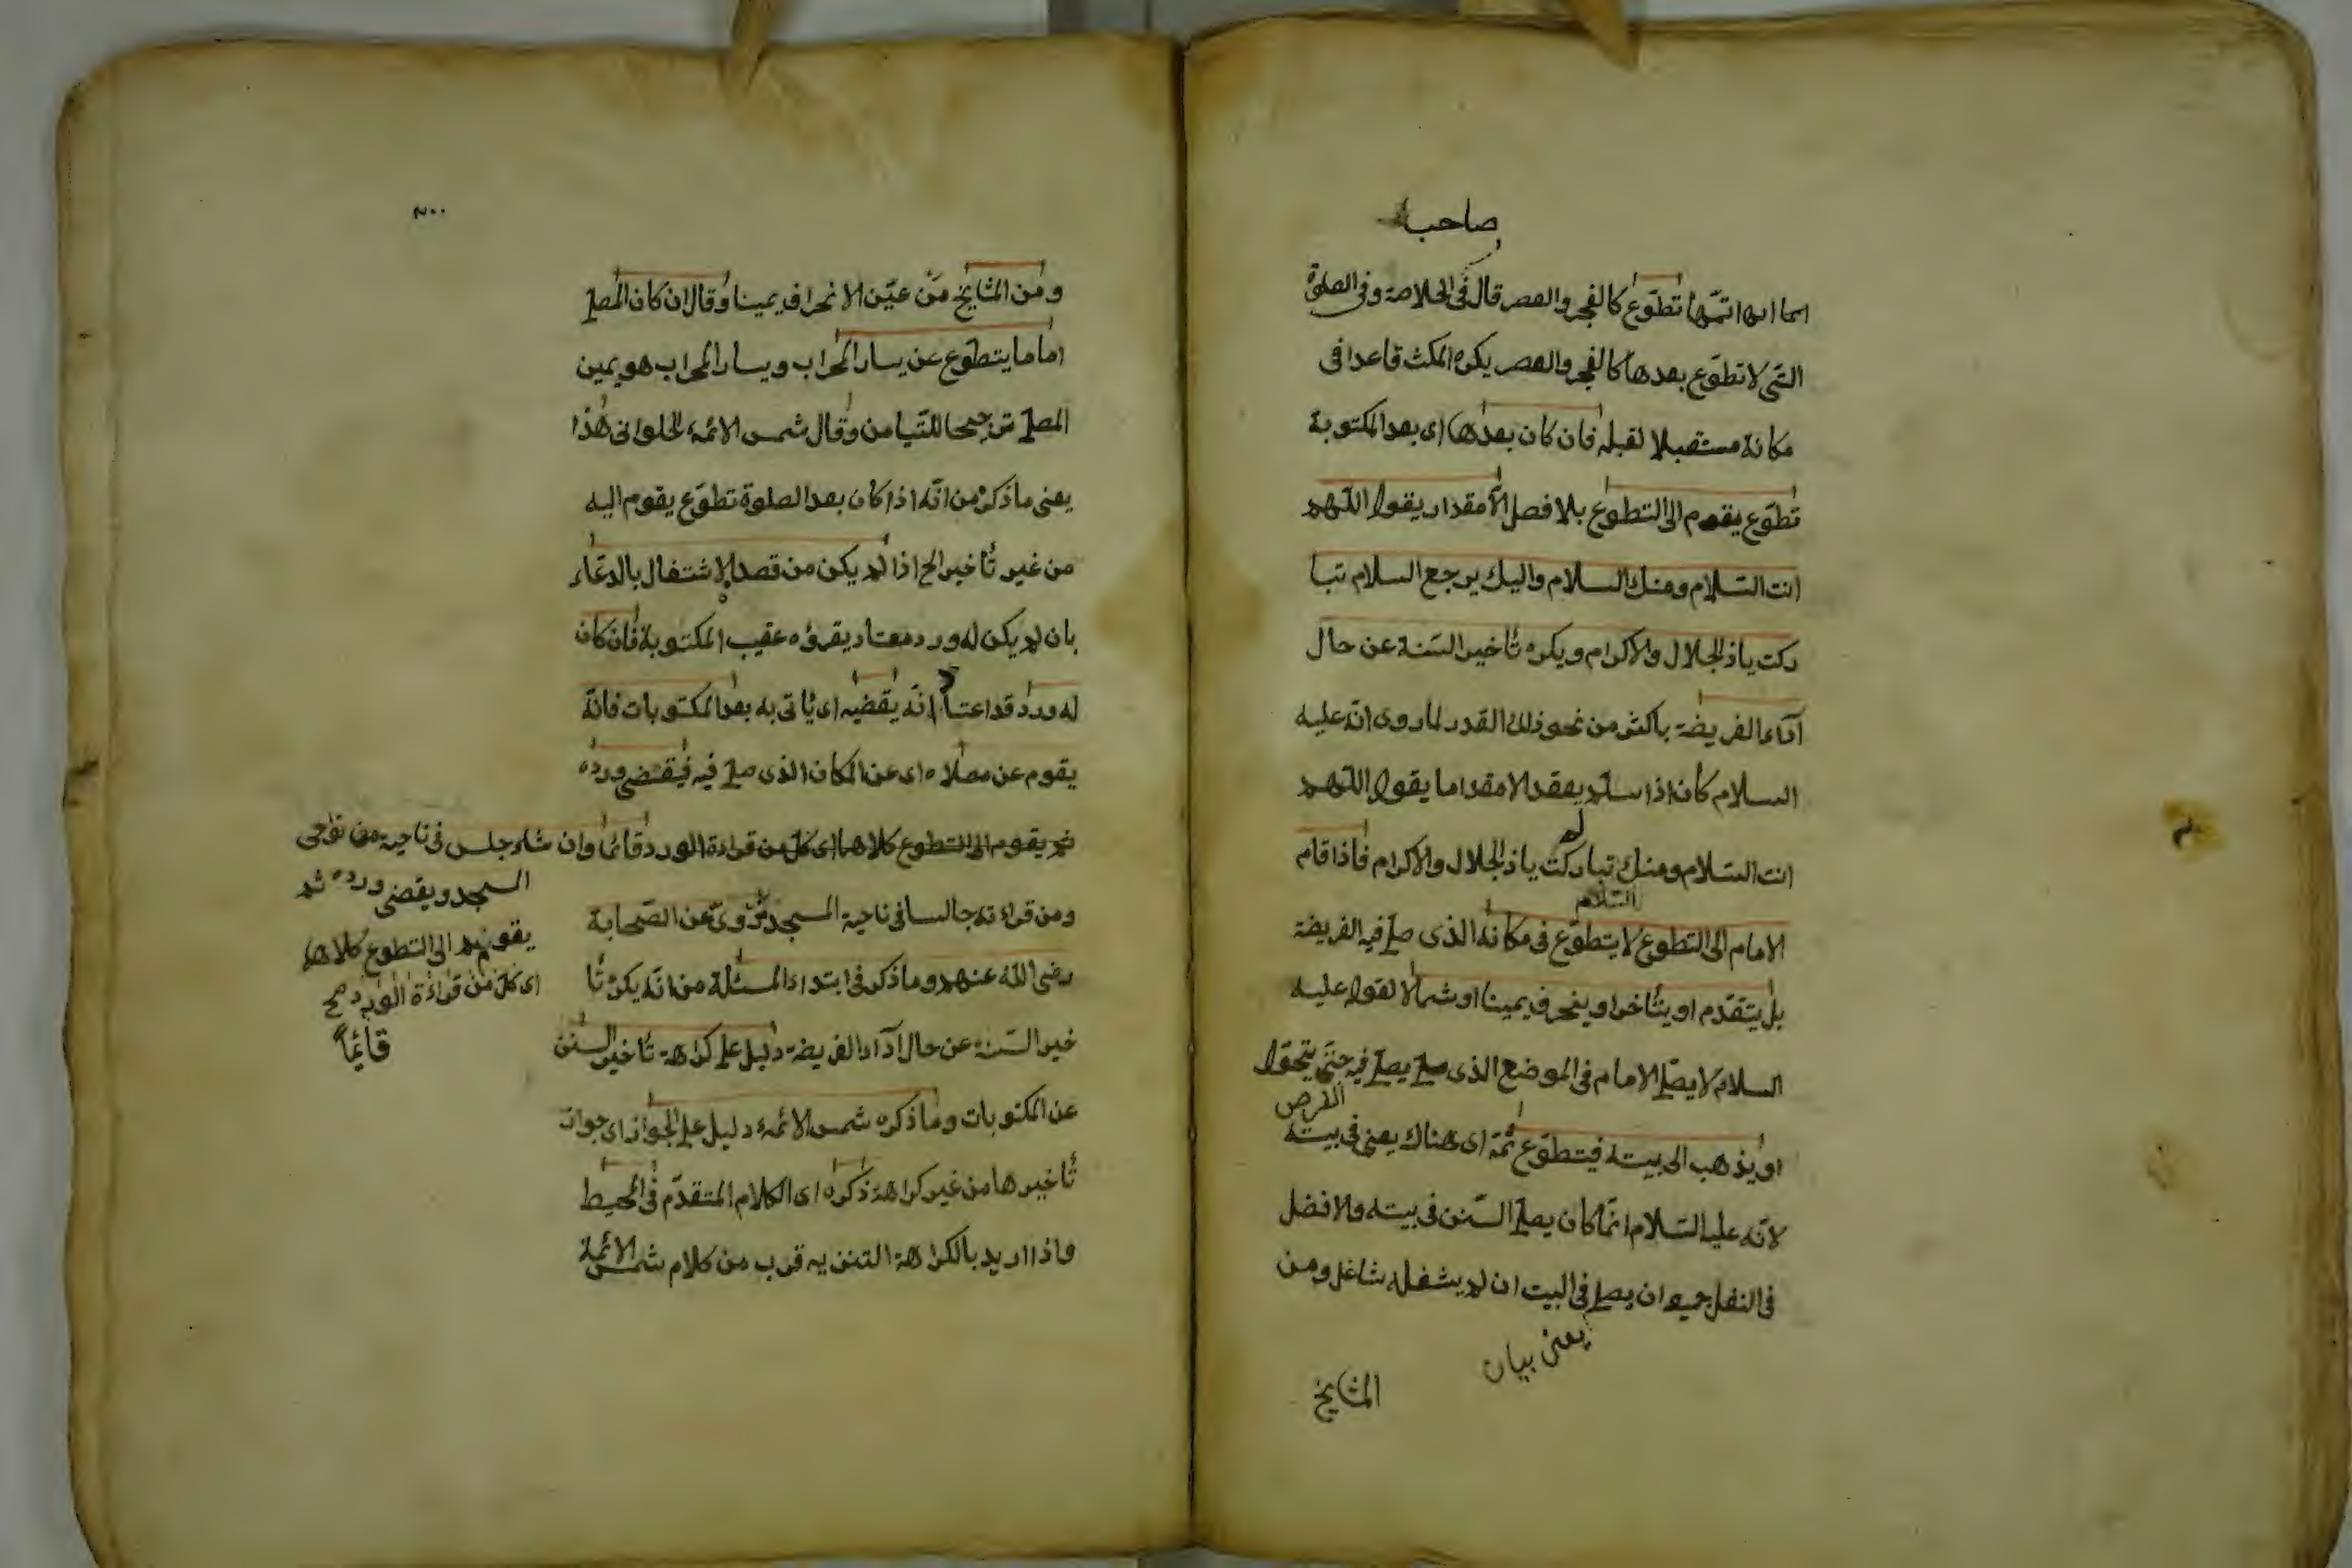 صاحب
تطوّع كالفجر والعصر قال فى الخلاصة وفى الصلوة
التى لا تطوّع بعدها كالفجر والعصر يكره المكث قاعدا فى
مكانة مستقبلا لقبله فان كان بعدها اى بعد المكتوبة
تطوّع يقوم الى التطوع بلا فصل الا مقدار يقول اللّهم
انت السّلام ومنك السلام واليك يرجع السلام تبا
ركت ياذ الجلال والاكرام ويكره تأخير السّنة عن حال
اداء الفريضة باكثر من نحو ذلك القدر لما روى انّه عليه
السلام كان اذا سلّم يعقد الا مقدا ما يقول اللّهم
انت السلام ومنك تباركت ياذ الجلال والاكرام فاذا قام
السّلام
الامام الى التطوع لا يتطوّع فى مكانه الذى صلى فيه الفريضة
بل يتقدّم او يتأخر او ينحرف يمينا او شمالا لقوله عليه
السلام لا يصلّى الامام فى الموضع الذى صلى يصلى فيه حتى يتحوّل
الفرض
او يذهب الى بيته فيتطوّع ثمّة اى هناك يعنى فى بيته
لانّه عليه السّلام انّما كان يصلى السّنن فى بيته والافضل
فى النفل جميعا ان يصلى فى البيت ان لم يشغله شاغل ومن
يعنى بيان
المشايخ
٣٠٠
ومن المشايخ مَن عيّن الانحراف يمينا وقال ان كان المصلى
اماما يتطوّع عن يسار المحراب ويسار المحراب هو يمين
المصلى ترجيحا للتّيامن وقال شمس الائمة الحلوانى هذا
يعنى ما ذكر من انّه اذا كان بعد الصلوة تطوّع يقوم اليه
من غير تأخير الخ اذا لم يكن من قصد الاشتغال بالدعاء
بان لم يكن له ورد معتاد يقرؤه عقيب المكتوبة فان كان
له ورد قد اعتا انّه يقضيه اى يأتى به بعد المكتوبات فانّه
يقوم عن مصلاه اى عن المكان الذى صلى فيه فيقضى ورده
ثم يقوم الى التطوع كلاهما اى كل من قراءة الورد قائما وان شاء جلس فى ناحية من نواحى
السجد ويقضى ورده ثم
يقوم الى التطوع كلاهما
اى كل من قراءة الورد صح
قائمًا
ومن قراءته جالسا فى ناحية المسجد مروىّ عن الصّحابة
رضى اللّه عنهم وما ذكر فى ابتداء المسئلة من انّه يكره تأ
خير السّنة عن حال اداء الفريضة دليل على كراهة تأخير السنن
عن المكتوبات وما ذكره شمس الائمة دليل على الجواز اى جواز
تأخيرها من غير كراهة ذكره اى الكلام المتقدّم فى المحيط
واذا اريد بالكراهة التنزيه قرب من كلام شمس الائمة